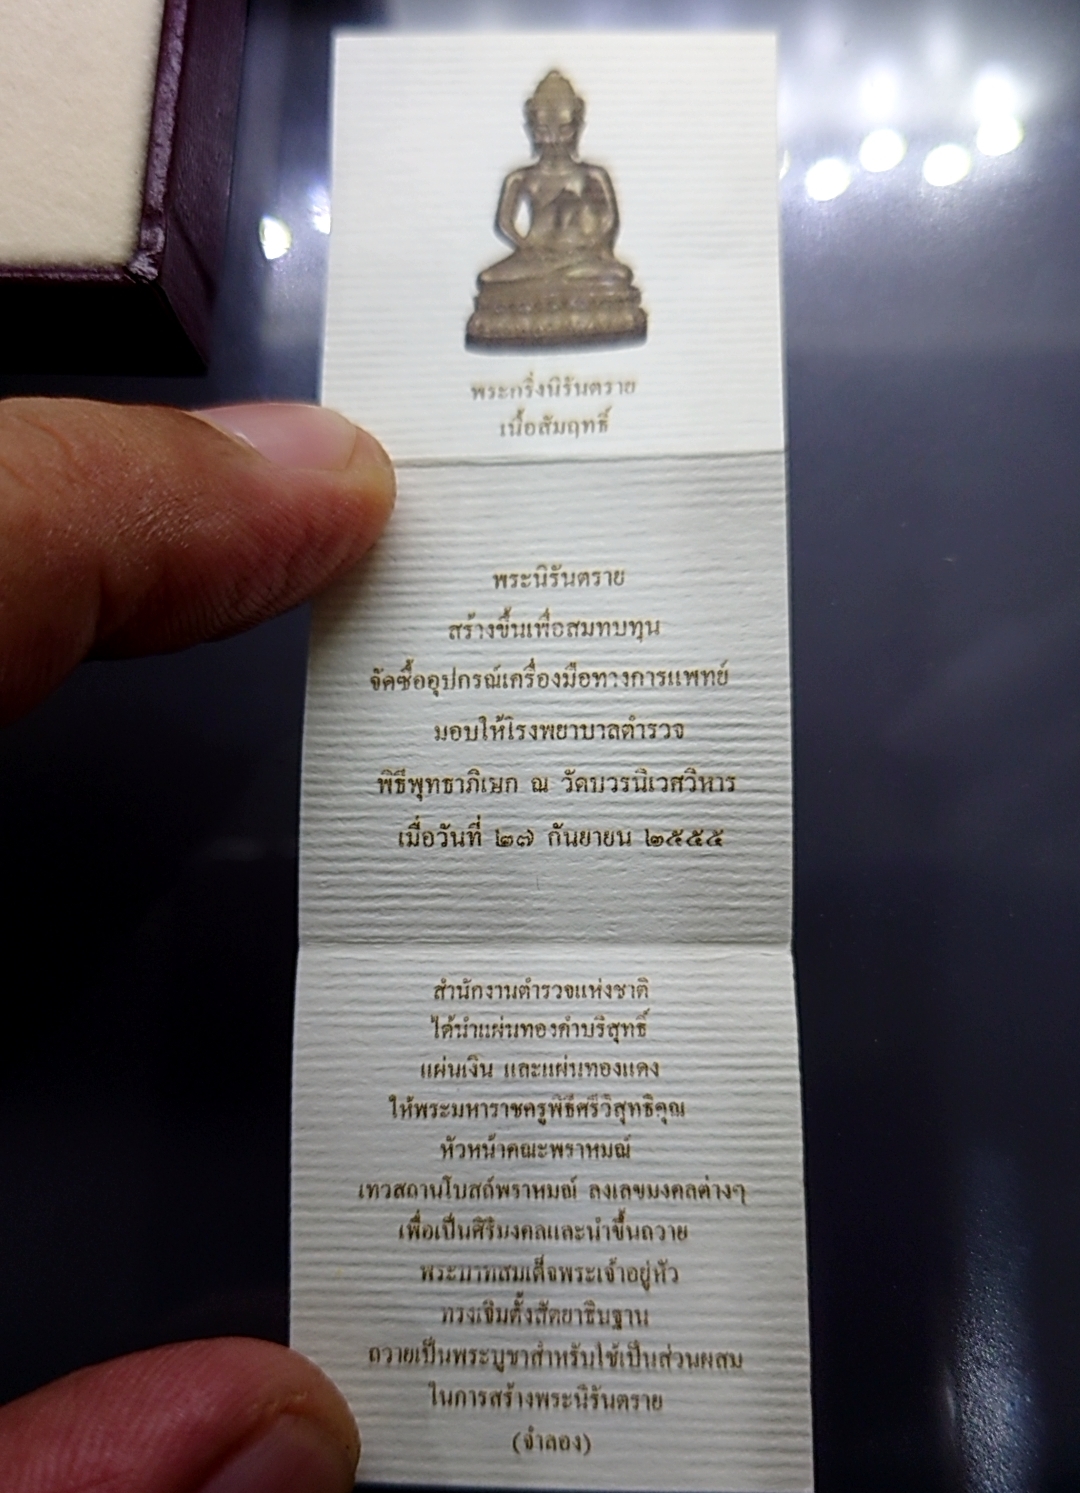 พระกริ่งนิรันตราย
เนื้อสัมฤทธิ์
พระนิรันตราย
สร้างขึ้นเพื่อสมทบทุน
จัดซื้ออุปกรณ์เครื่องมือทางการแพทย์
มอบให้โรงพยาบาลตำรวจ
พิธีพุทธาภิเษก ณ วัดบวรนิเวศวิหาร
เมื่อวันที่ ๒๗ กันยายน ๒๕๕๕
สำนักงานตำรวจแห่งชาติ
ได้นำแผ่นทองคำบริสุทธิ์
แผ่นเงิน และแผ่นทองแดง
ให้พระมหาราชครูพิธีศรีวิสุทธิคุณ
หัวหน้าคณะพราหมณ์
เทวสถานโบสถ์พราหมณ์ ลงเลขมงคลต่างๆ
เพื่อเป็นศิริมงคลและนำขึ้นถวาย
พระบาทสมเด็จพระเจ้าอยู่หัว
ทรงเจิมตั้งสัตยาธิษฐาน
ถวายเป็นพระบูชาสำหรับใช้เป็นส่วนผสม
ในการสร้างพระนิรันตราย
(จำลอง)